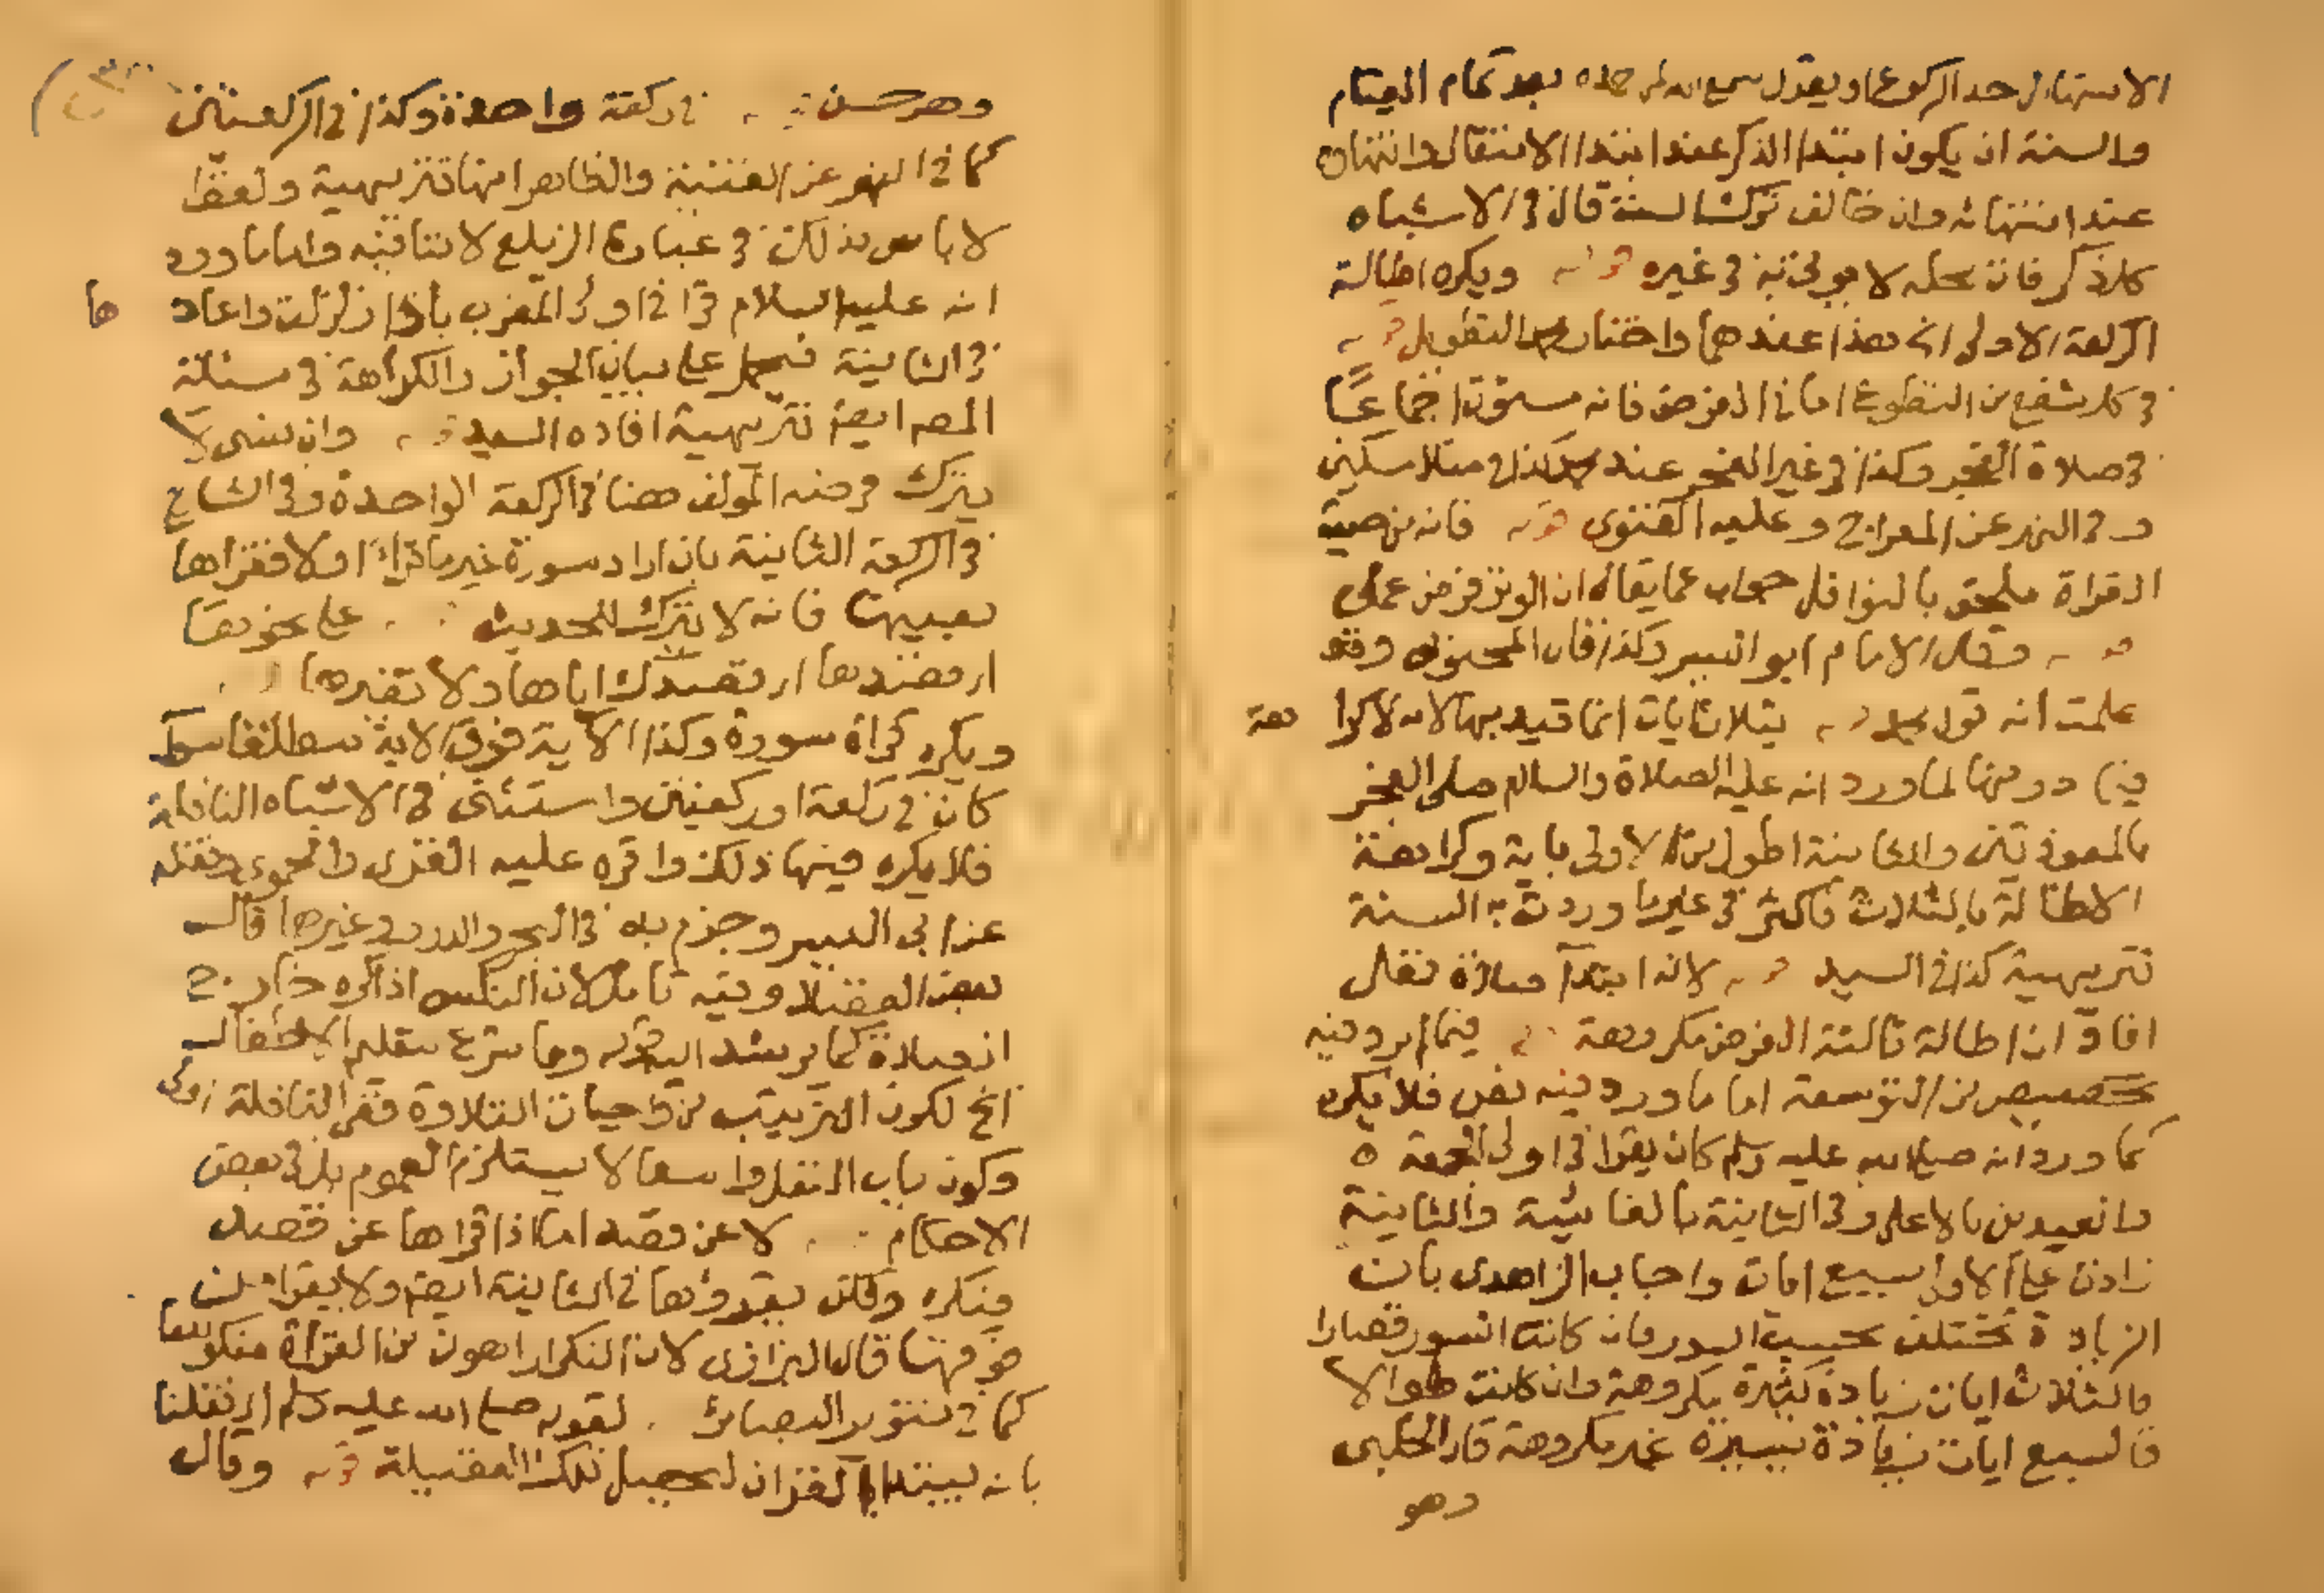 الانتهاء لحد الركوع او يقول سمع الله لمن حمده بعد تمام القيام
والسنة ان يكون ابتداء الذكر عند ابتداء الانتقال وانتهاه
عند انتهائه وان خالف ترك السنة قال في الاشباه
كل ذكر فات محله لا يوتى به في غيره ويكره اطالة
الركعة الاولى اي هذا عندهما واختار التطويل
في كل شفع من التطوع اما في الفرض فانه مسنون اجماعا
في صلاة الفجر وكذا في غير الفجر عند
و في النهر عن المعراج وعليه الفتوى فانه من حيث
القراة ملحق بالنوافل جواب عما يقال ان الوتر فرض عملي
وقال الامام ابو اليسر وكذا قال وقد
علمت انه قول بثلاث ايات انما قيد بها لانه لا كرا هة
فيما دونها لما ورد انه عليه الصلاة والسلام صلى الفجر
بالمعوذتين والثانية اطول من الاولى باية وكراهة
الاطالة بالثلاث فاكثر في غير ما وردت به السنة
تنزيهية كذا في السيد لانه ابتداء صلاة نفل
افاد ان اطالة ثالثة الفرض مكروهة فيما لم يرد فيه
تخصيص من التوسعة اما ما ورد فيه نص فلا يكره
كما ورد انه صلى الله عليه وسلم كان يقرا في اولى الجمعة
والعيدين بالاعلى وفي الثانية بالغاشية والثانية
زادت على الاولى بسبع ايات واجاب الزاهدي بان
الزيادة تختلف بحسب السور فان كانت السور قصارا
فالثلاث ايات زيادة كثيرة مكروهة وان كانت طوالا
فالسبع ايات زيادة يسيرة غير مكروهة قال الحلبي
وهو
وهو حسن في ركعة واحدة وكذا في الركعتين
كما في النهر عن القنية والظاهر انها تنزيهية ولفظ
لا باس بذلك في عبارة الزيلع لا تنافيه واما ما ورد
انه عليه السلام قرا في اولى المغرب باذا زلزلت واعاد ها
في الثانية فيحمل على بيان الجواز والكراهة في مسئلة
المصه ايضا تنزيهية افاده السيد وان نسى لا
يترك فرضه المولف هنا في الركعة الواحدة وفي الشارح
في الركعة الثانية بان اراد سورة غير ما قراء اولا فقراها
بعينها فانه لا يترك للحديث على نحوها
اي قصدك اياها ولا تغيرها
ويكره قراة سورة وكذا الاية فوق الاية مطلقا سوآ
كان في ركعة او ركعتين واستثنى في الاشباه النافلة
فلا يكره فيها ذلك واقره عليه الغزى والحموي ونقله
عن ابي اليسر وجزم به في البحر والدرر وغيرها قال
بعض الفضلا وفيه تامل لان النكس اذا كره خارج
الصلاة كما يرشد اليه قوله وما شرع لتعليم الاطفال
الخ لكون الترتيب من واجبات التلاوة ففي النافلة اولى
وكون باب النفل واسعا لا يستلزم العموم بل في بعض
الاحكام لا عن قصد اما اذا قراها عن قصد
فيكره ولكن يقروها في الثانية ايضا ولا يقرا من
فوقها قال البزازى لان التكرار اهون من القراة منكوسا
كما في تنوير البصائر لقوله صلى الله عليه وسلم
بانه يبتدا القران لتحصيل تلك الفضيلة وقال